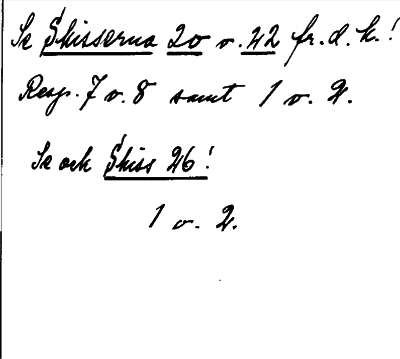 Se Skisserna 20 o. 42 fr. d. k.!
Resp. 7 o. 8 samt 1 o. 2.
Se och Skiss 26!
1 o. 2.